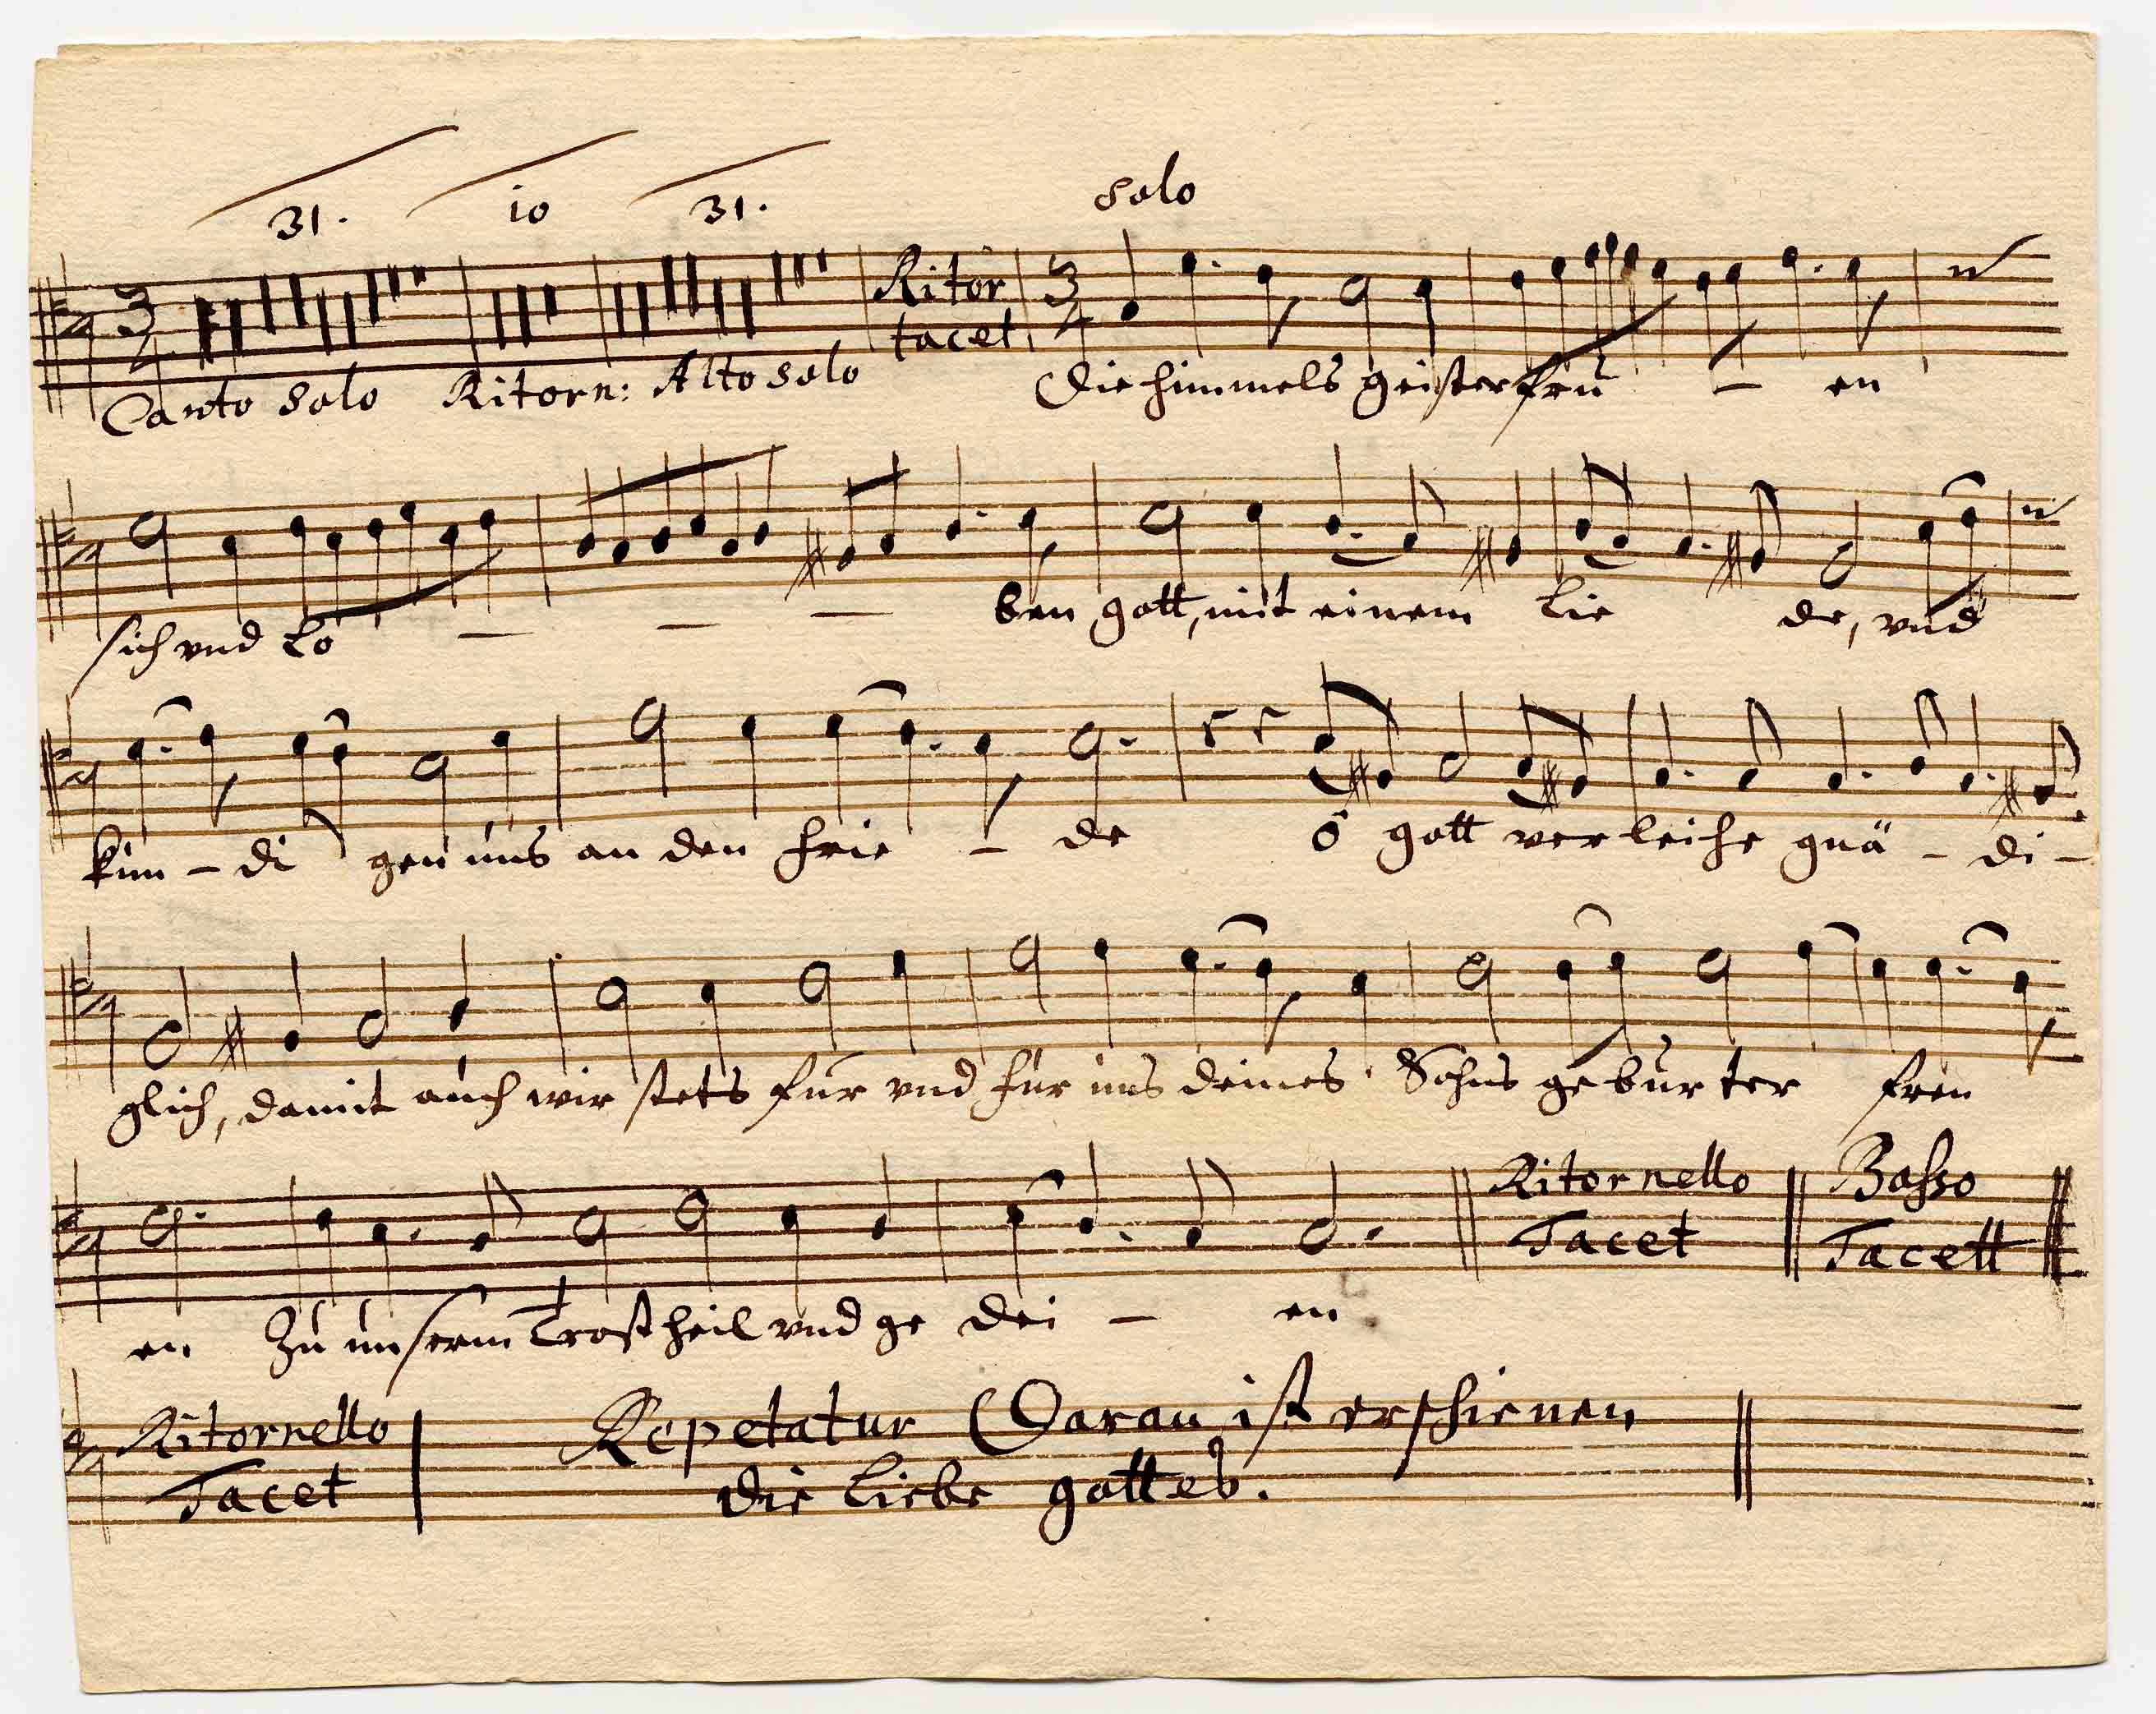 31. 10 31. solo
3/4 Ritor 3/4
tacet
Canto solo Ritorn: Alto solo Die himmels geister freu – en
sich vnd lo – – – ben gott, mit einem lie de, vnd
kün – di gen uns an den frie – de ô gott verleihe gnä – di –
glich, damit auch wir stets für vnd für uns deines Sohns geburt er freu
Ritornello Basso
Tacet Tacett
en Zu unserm Trost heil vnd ge dei – en
Ritornello Repetatur Daran ist erschienen
Tacet die liebe gottes.